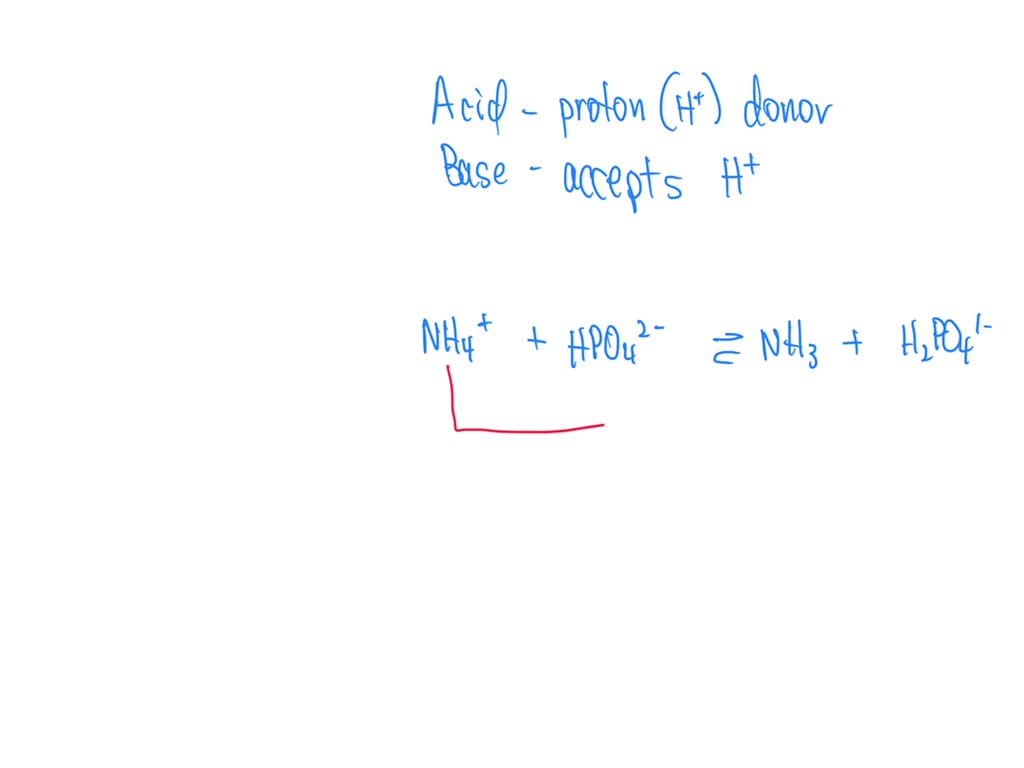 Acid - proton (H⁺) donor
Base - accepts H⁺
NH₄⁺ + HPO₄²⁻ ⇌ NH₃ + H₂PO₄¹⁻